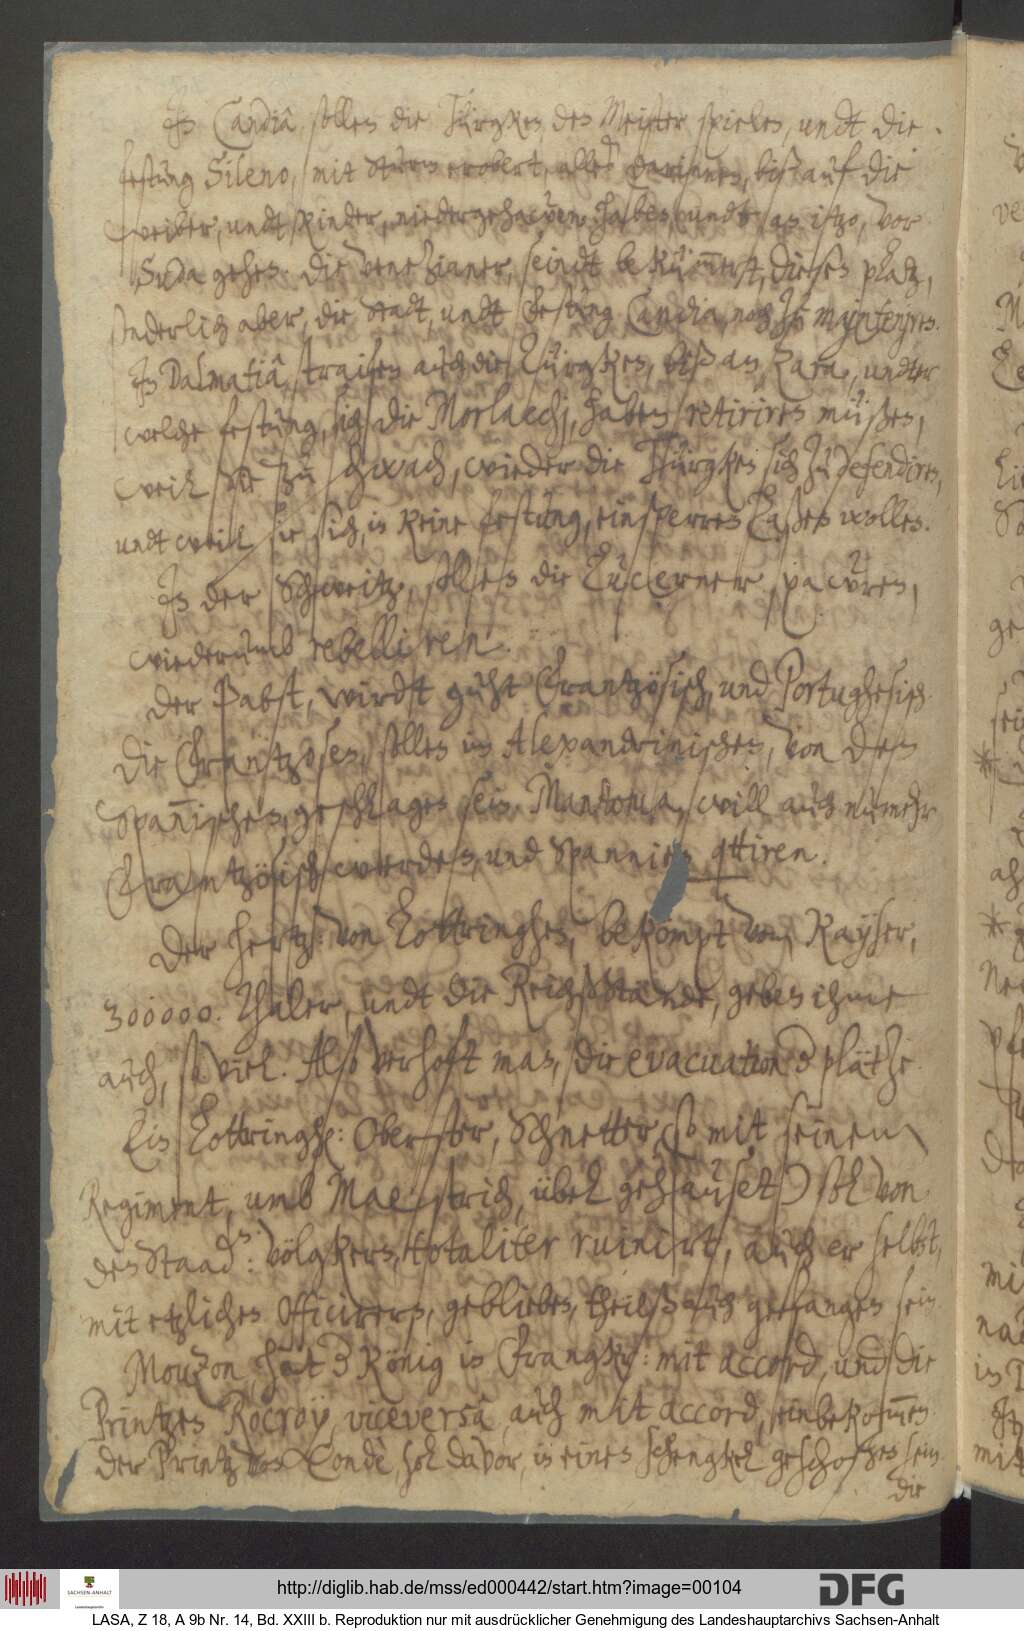 In Candia sollen die Türgken den Meister spielen, undt die
festung Sileno, mit sturm erobert, alles darinnen, biß auf die
weiber, undt Kinder, niedergehawen haben, undt an itzo, vor
Suda gehen. Die Venezianer, seindt bekümmert, diesen platz,
sonderlich aber, die Stadt, undt Festung Candia, noch zu maynteniren.
In Dalmatia, straifen auch die Türgken, biß an Zara, undter
welche festung, sich die Morlacchj, haben retiriren müßen,
weil sie zu schwach, wieder die Türgken sich zu defendiren,
undt weil sie sich, in keine festung, einsperren laßen wollen.
In der Schweitz, sollen die Lucerner pawren,
wiederumb rebelliren.
Der Pabst, wirdt guht Frantzösisch, und Portughesisch.
Die Frantzosen, sollen im Alexandrinischen, von den
Spannischen, geschlagen sein. Mantoua, will auch numehr
Frantzösisch werden, und Spannien quittiren.
Der Hertzog von Lottringhen, bekompt vom Kayser,
300000. Thaler, undt die ReichßStände, geben ihme
auch, so viel. Also verhoft man, die evacuation der plätze.
Ein Lottringhischer: Oberster, Schnetter (so mit seinem
Regiment, umb Maestrich, übel gehauset) soll von
den Staadischen: völgkern, totaliter ruinirt, auch er selbst,
mit etzlichen Officirern, geblieben, theilß auch gefangen sein.
Mouzon hat der König in Frangkreich: mit accord, und die
Printzen Rocroy, viceversa, auch mit accord, einbekommen.
der Printz von Condè, soll davor, in einen schengkel geschoßen sein.
die
http://diglib.hab.de/mss/ed000442/start.htm?image=00104
SACHSEN-ANHALT
DFG
LASA, Z 18, A 9b Nr. 14, Bd. XXIII b. Reproduktion nur mit ausdrücklicher Genehmigung des Landeshauptarchivs Sachsen-Anhalt